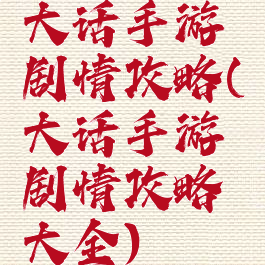 大话手游
剧情攻略(
大话手游
剧情攻略
大全)